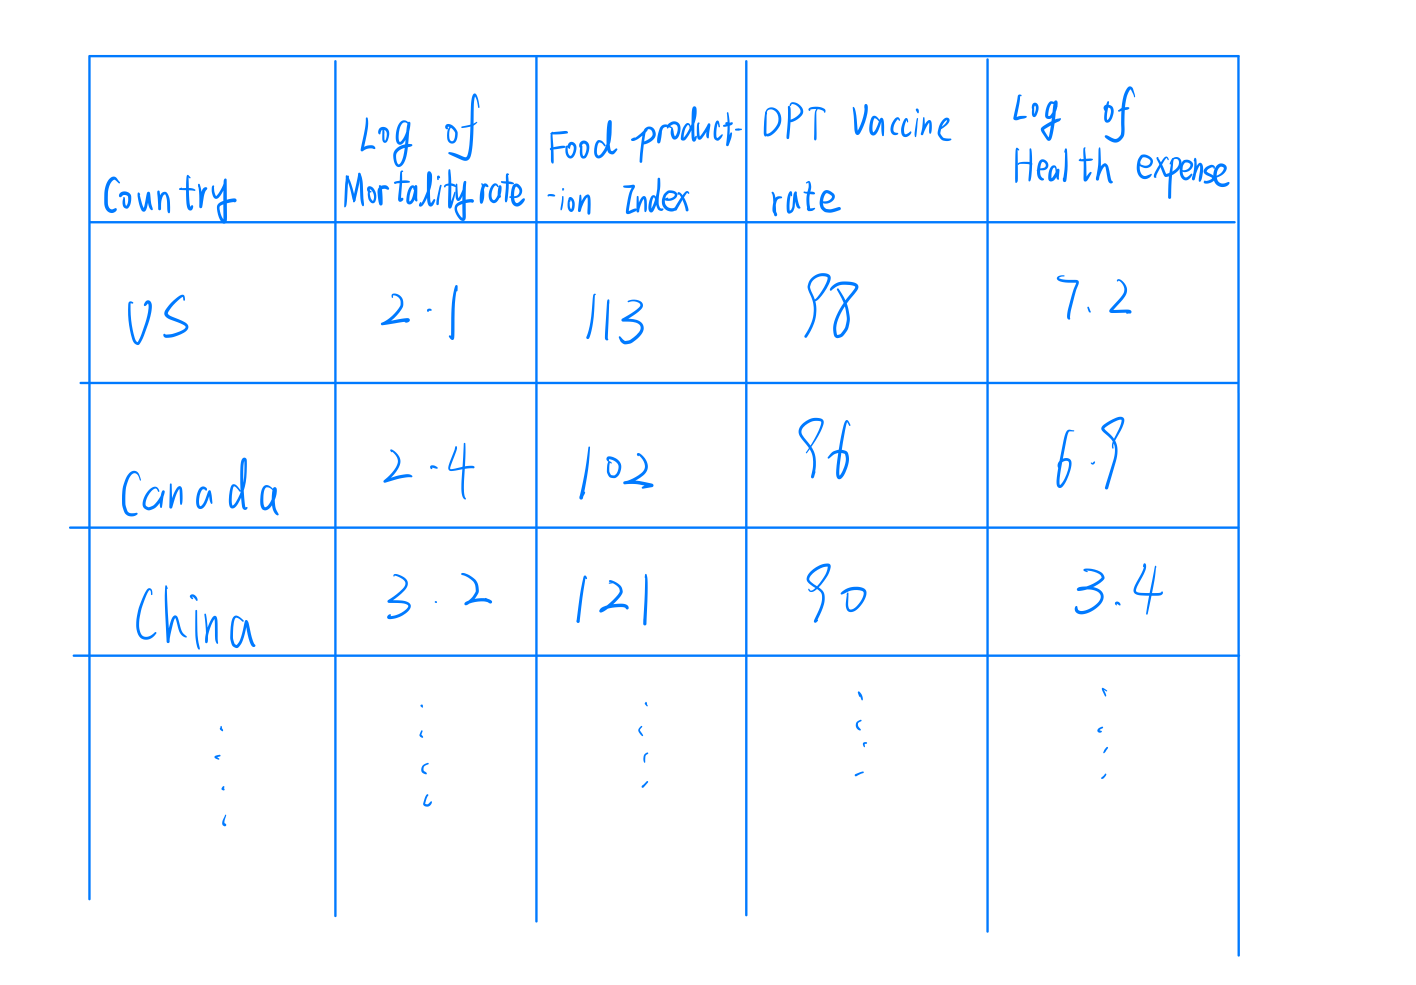 Country
Log of
Mortality rate
Food product-
-ion Index
DPT Vaccine
rate
Log of
Health expense
US
2.1
113
98
7.2
Canada
2.4
102
96
6.9
China
3.2
121
90
3.4